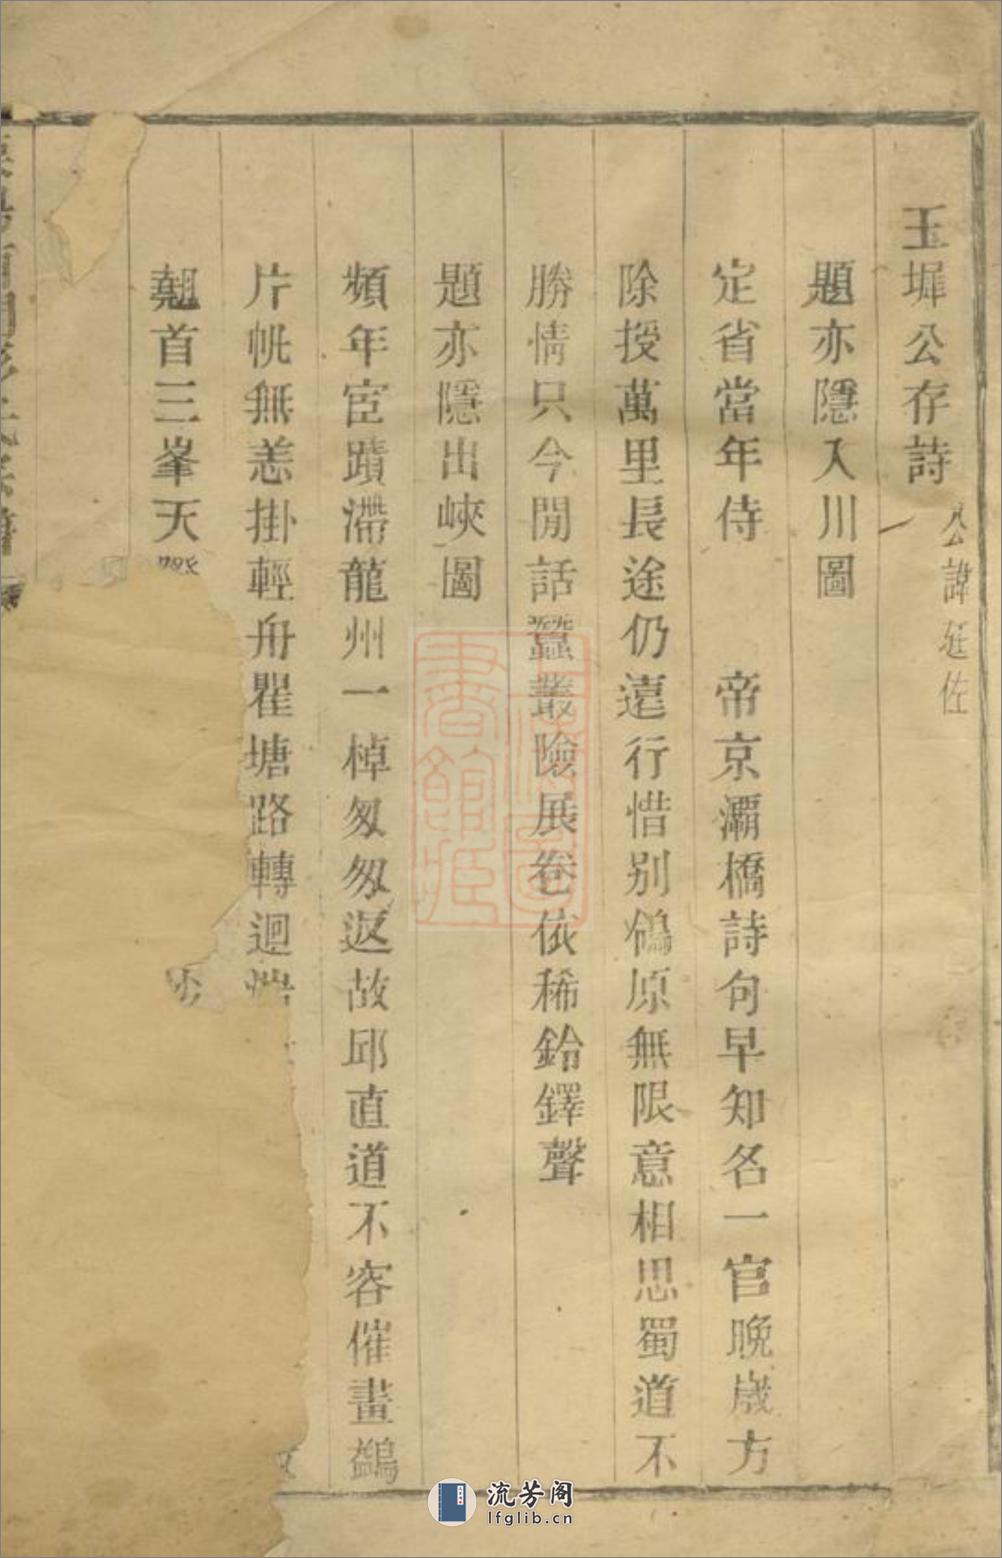 玉墀公存詩 公諱廷佐
題亦隱入川圖
定省當年侍 帝京灞橋詩句早知名一官晚歲方
除授萬里長途仍遠行惜别鴒原無限意相思蜀道不
勝情只今閒話蠶叢險展卷依稀鈴鐸聲
題亦隱出峽圖
頻年宦蹟滯龍州一棹匆匆返故邱直道不容催畫鷁
片帆無恙掛輕舟瞿塘路轉迴
翹首三峯天
流芳阁
lfglib.cn